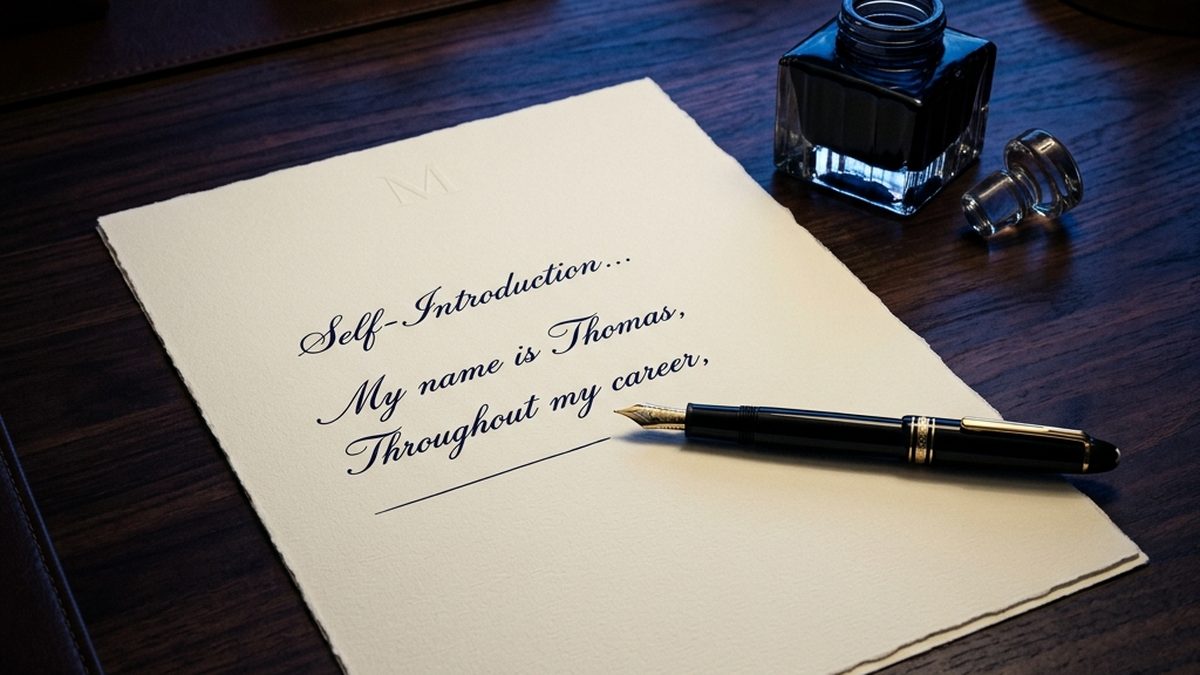 M
Self-Introduction...
My name is Thomas,
Throughout my career,